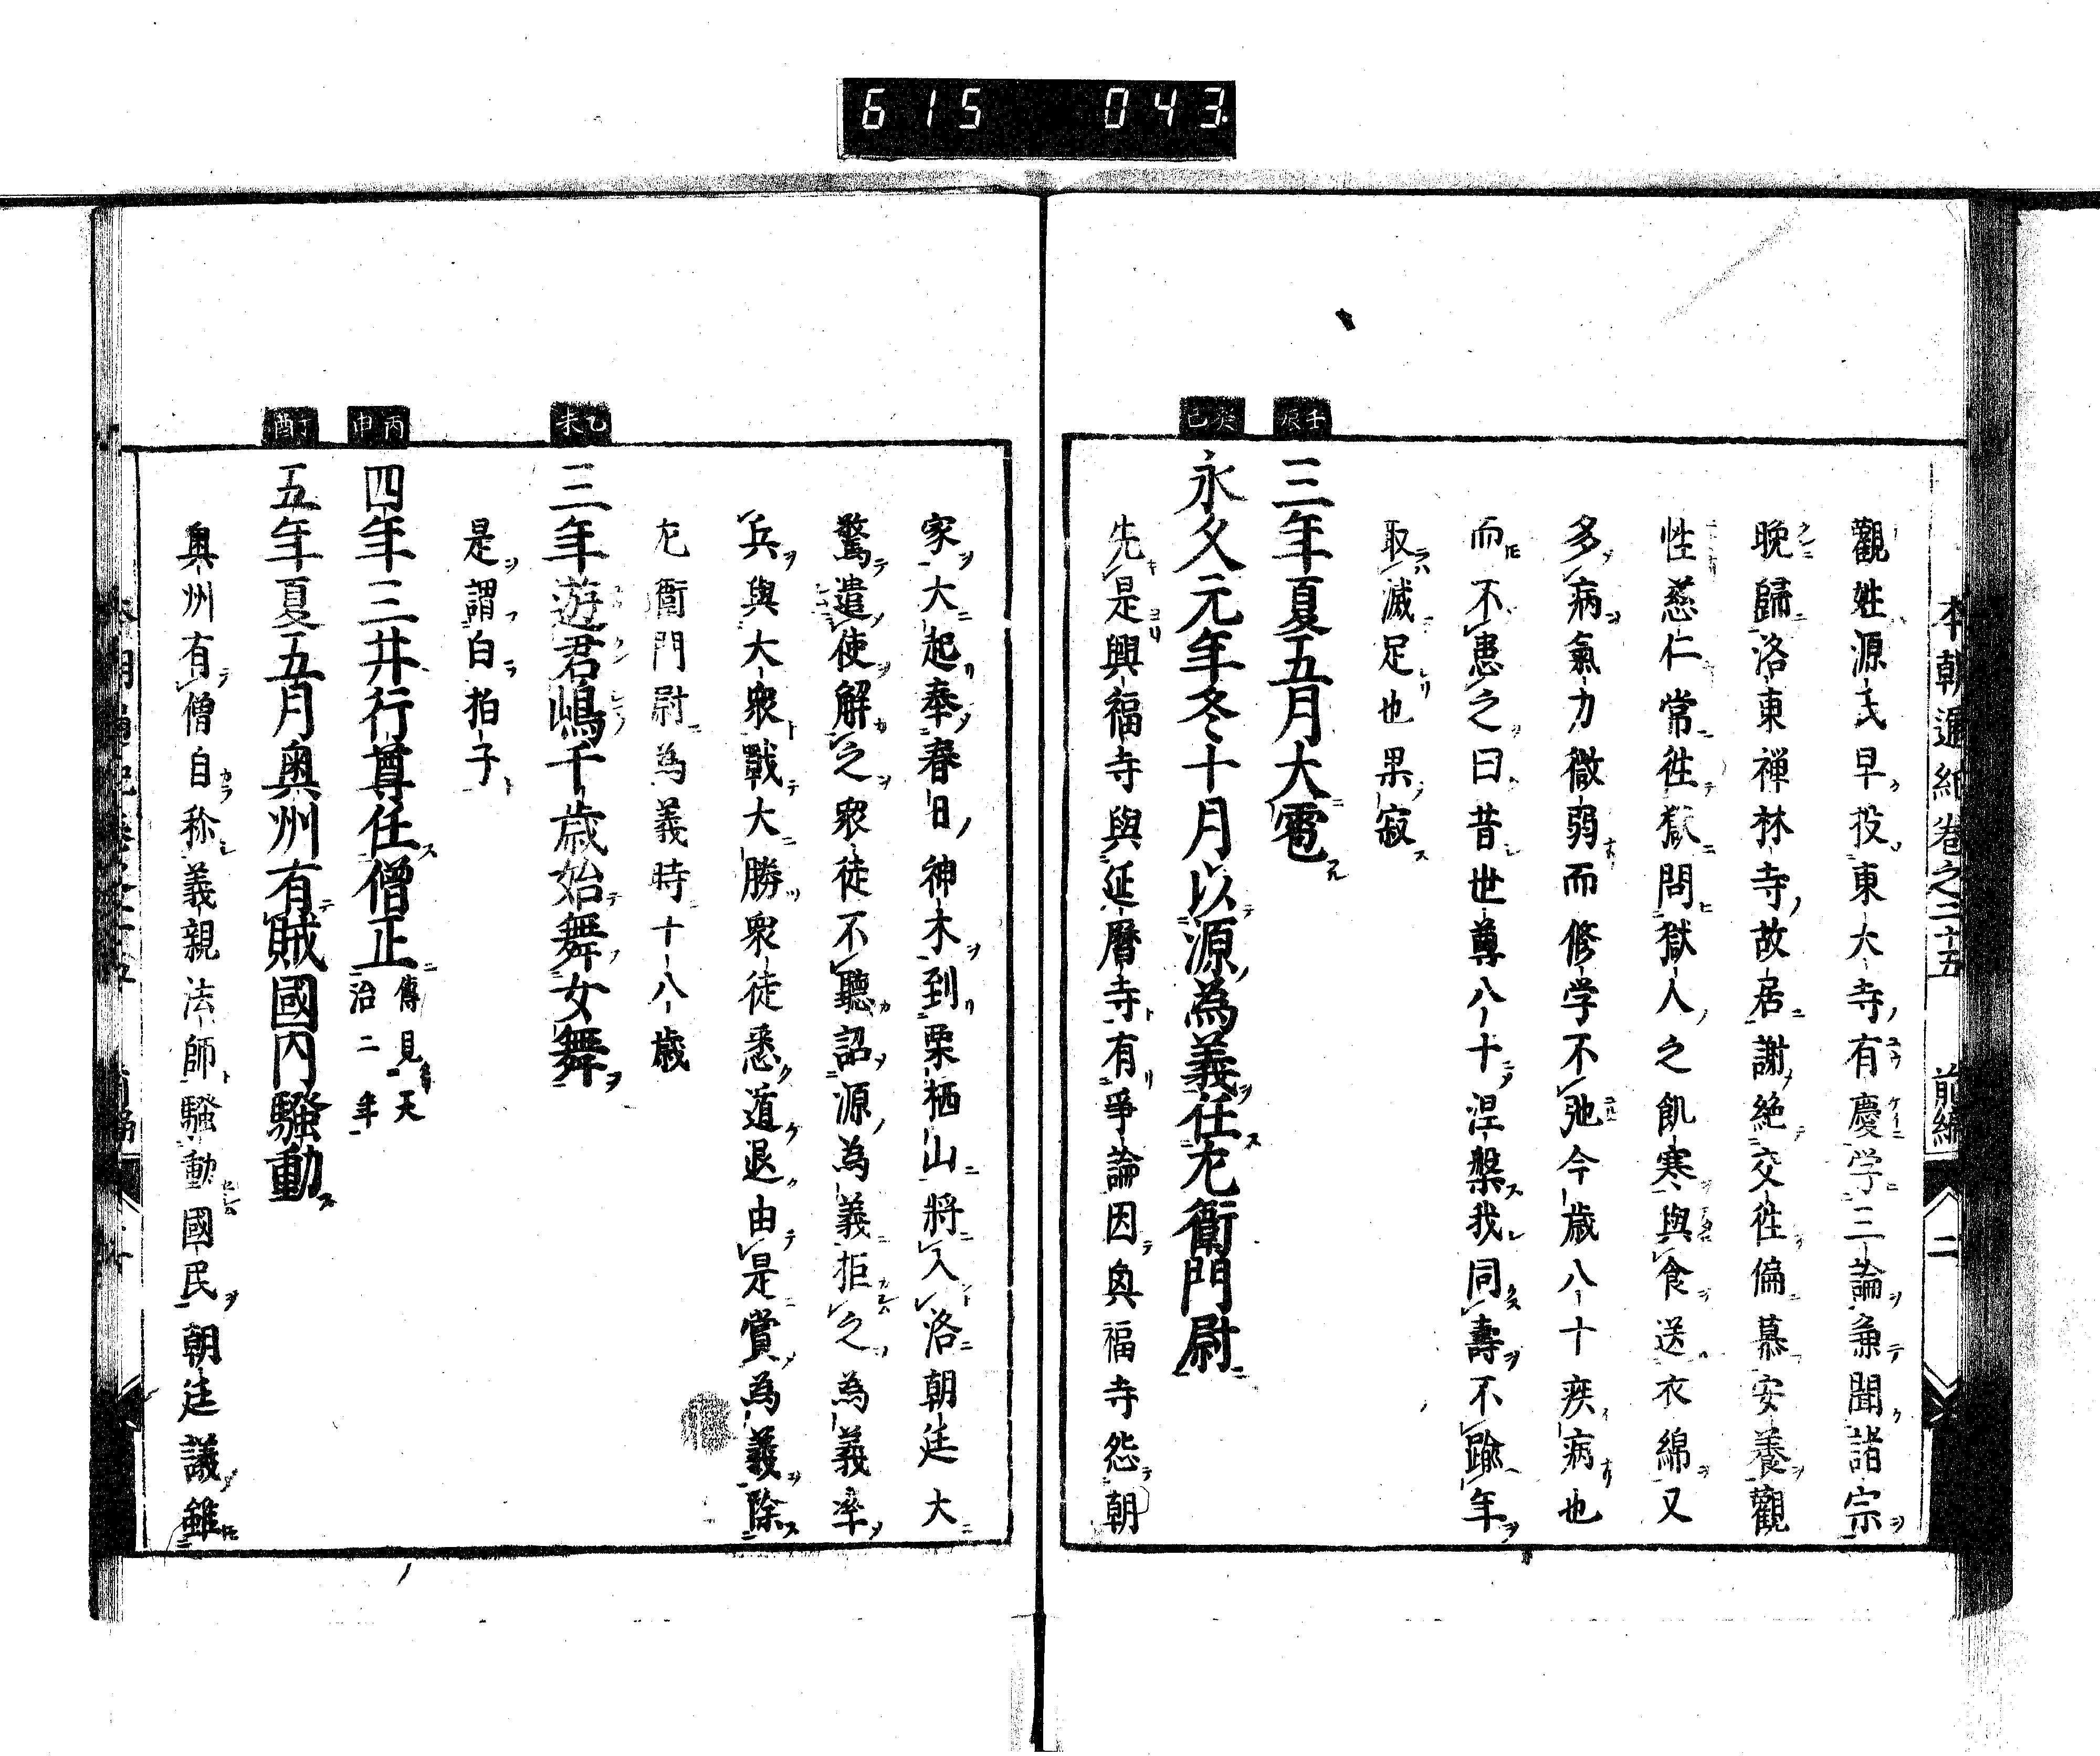 615 043
本朝通紀卷之二十五 前編 二
觀姓源氏早投東大寺有慶学三論兼聞諸宗
晚歸洛東禅林寺故居謝絶交徃偏慕安養觀
性慈仁常徃獄問獄人之飢寒與食送衣綿又
多病氣力微弱而修学不弛今歳八十疾病也
而不患之曰昔世尊八十涅槃我同壽不踰年
取滅足也果寂
壬辰
三年夏五月大雹
癸巳
永久元年冬十月以源為義任左衛門尉
先是興福寺與延曆寺有爭論因興福寺怨朝
家大起奉春日神木到栗栖山將入洛朝廷大
驚遣使解之衆徒不聽詔源為義拒之為義率
兵與大衆戰大勝衆徒悉遁退由是賞為義除
左衛門尉為義時十八歳
乙未
三年遊君嶋千歳始舞女舞
是謂白拍子
丙申
四年三井行尊任僧正 傳見天治二年
丁酉
五年夏五月奥州有賊國内騒動
奥州有僧自称義親法師騒動國民朝廷議雖